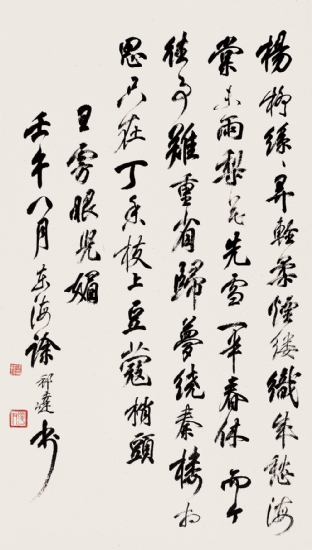 楊柳絲々弄輕柔煙縷織成愁海
棠未雨梨花先雪一半春休而今
往事難重省歸夢繞秦樓相
思只在丁香枝上豆蔻梢頭
王雱眼兒媚
壬午八月東海徐邦達書